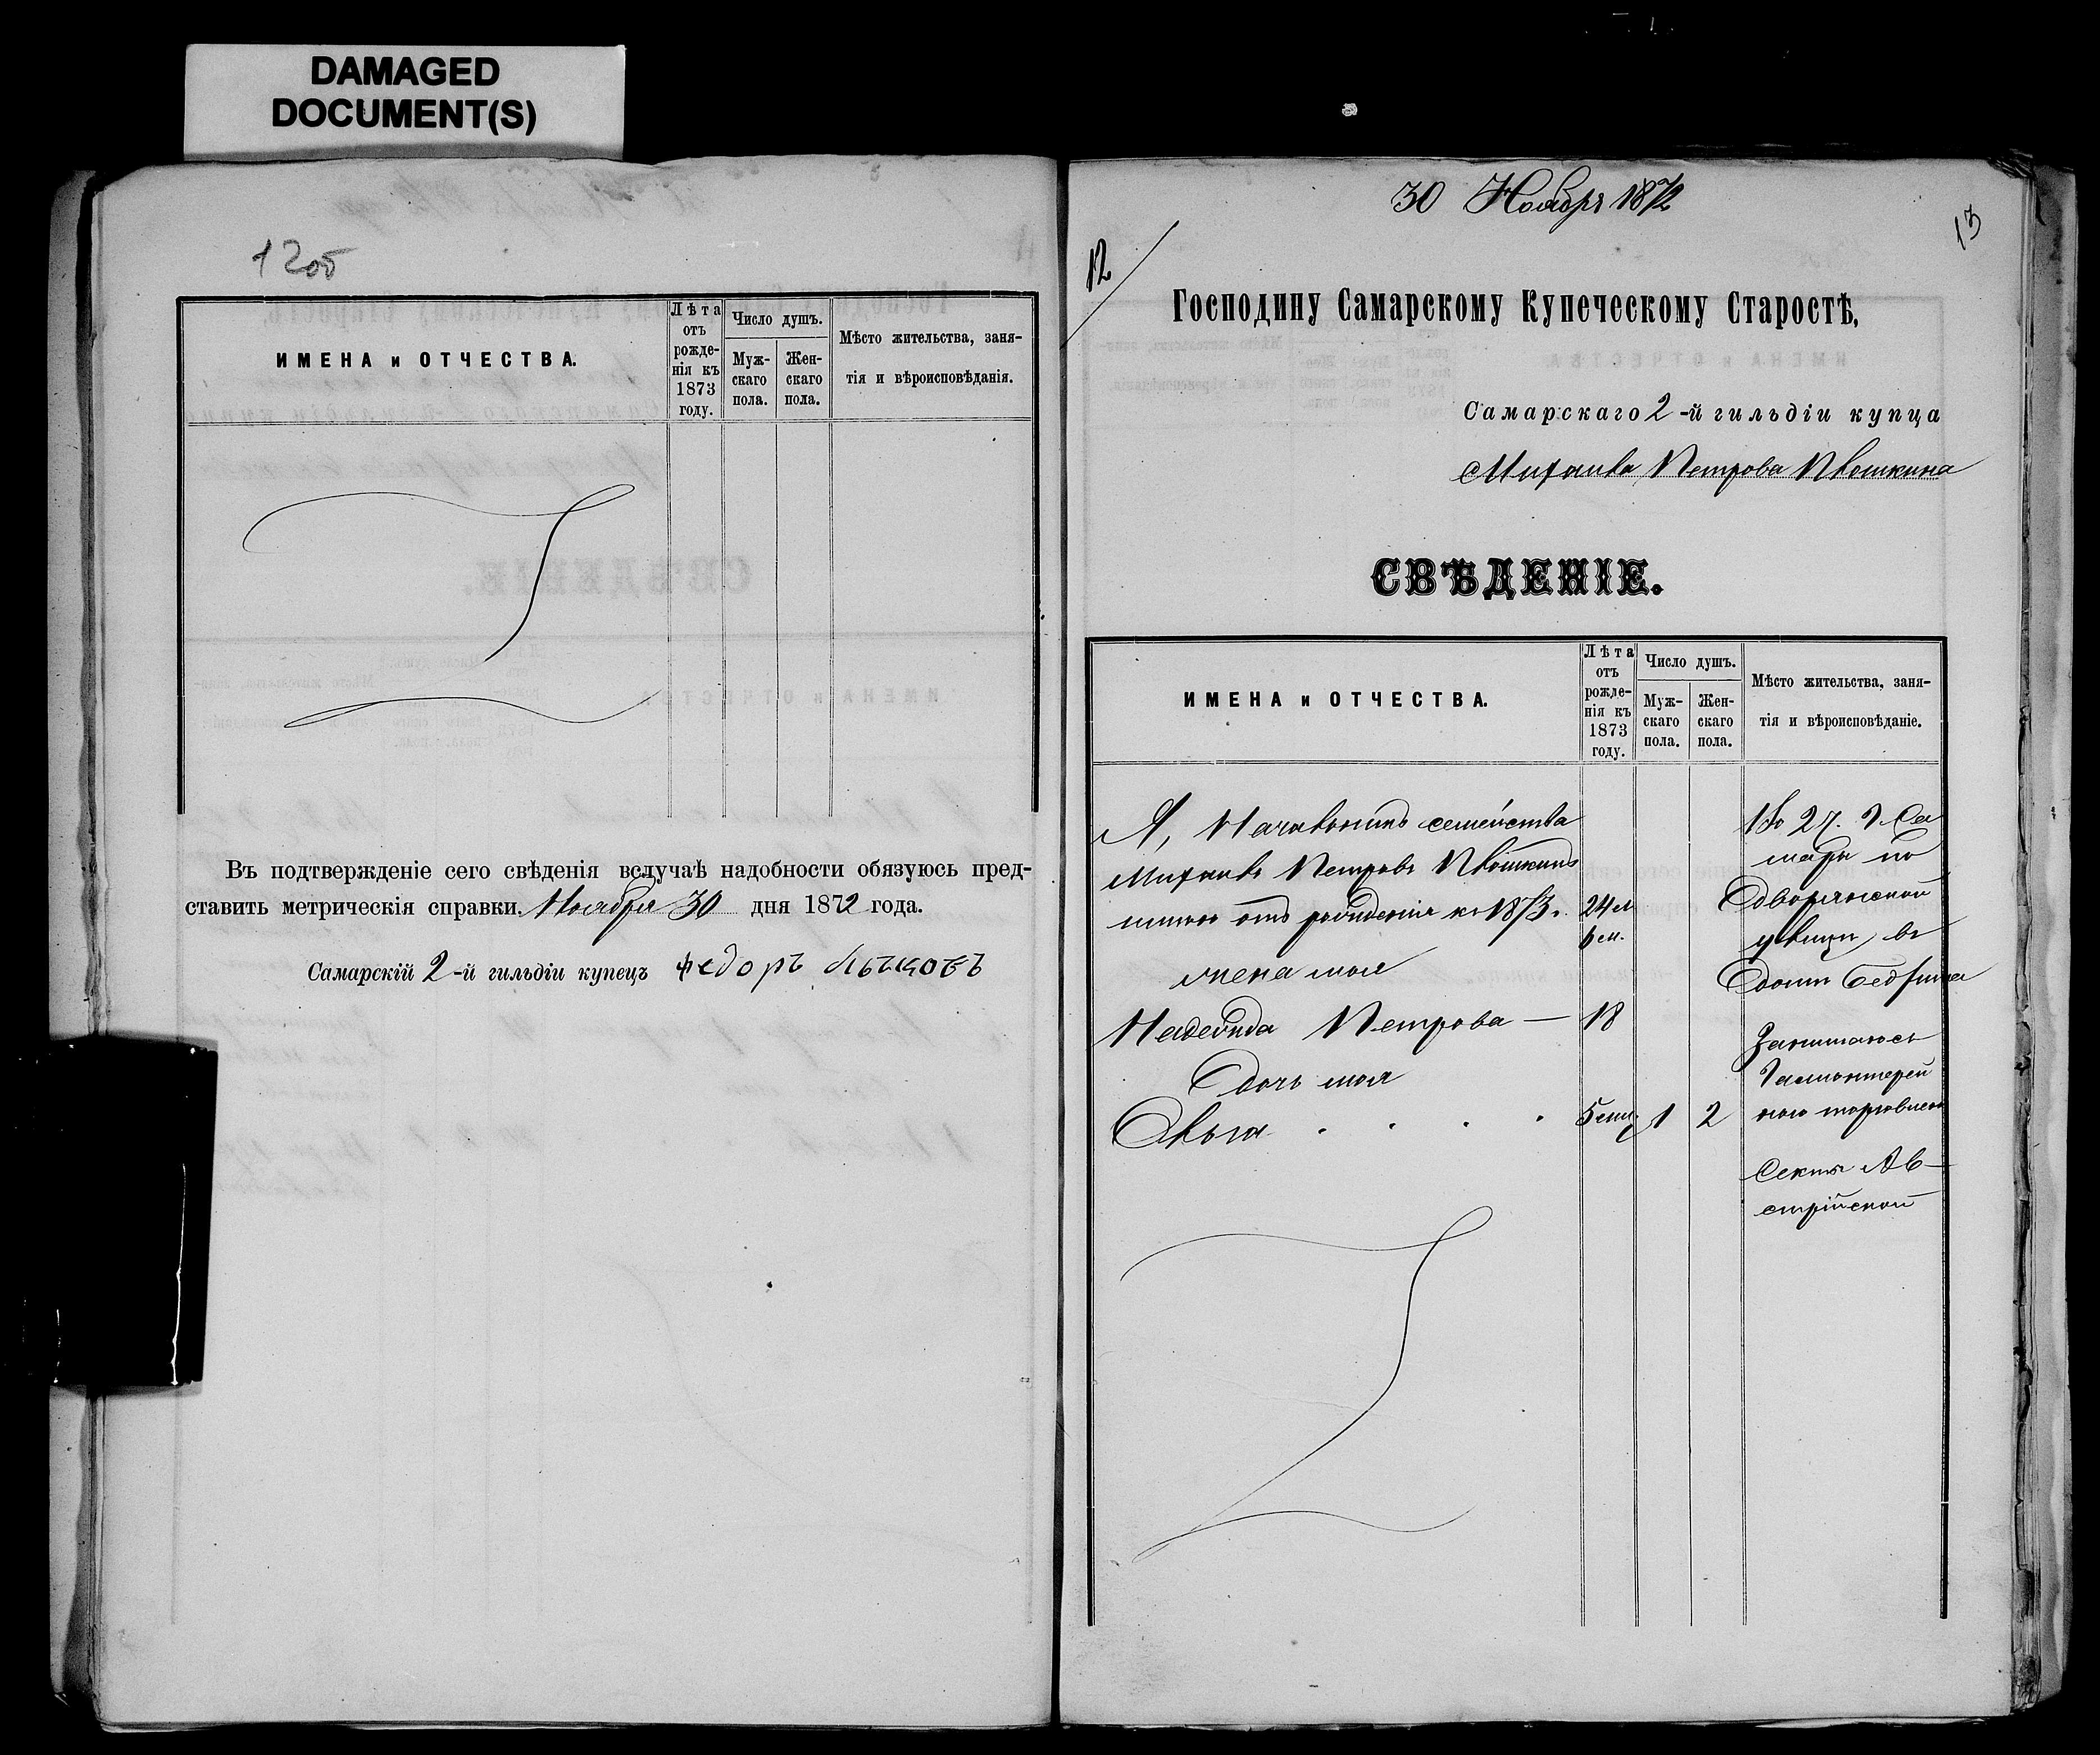 DAMAGED
DOCUMENT(S)
12об
ИМЕНА и ОТЧЕСТВА.
Лѣта отъ рожденія къ 1873 году.
Число душъ.
Мужскаго пола.
Женскаго пола.
Мѣсто жительства, занятія и вѣроисповѣданія.
Въ подтвержденіе сего свѣденія вслучаѣ надобности обязуюсь пред-
ставить метрическія справки. Ноября 30 дня 1872 года.
Самарскій 2-й гильдіи купецъ Федоръ
30 Ноября 1872
13
12
Господину Самарскому Купеческому Старостѣ,
Самарскаго 2-й гильдіи купца
Михаила Петрова Плешкина
СВѢДЕНІЕ.
ИМЕНА и ОТЧЕСТВА.
Лѣта отъ рожденія къ 1873 году.
Число душъ.
Мужскаго пола.
Женскаго пола.
Мѣсто жительства, занятія и вѣроисповѣданіе.
Я, Начальникъ семейства
Михаилъ Петровъ Плешкинъ
мнѣ отъ рожденія къ 1873 г. 24 л
6 м.
жена моя
Надежда Петрова — 18
Дочь моя
Ольга 5 мц 1 2
Въ г. Са
марѣ по
Дворянской
улицы въ
Домѣ
Занимаюсь
Галантерей
ною торговлею
Секты Ав—
стрійской